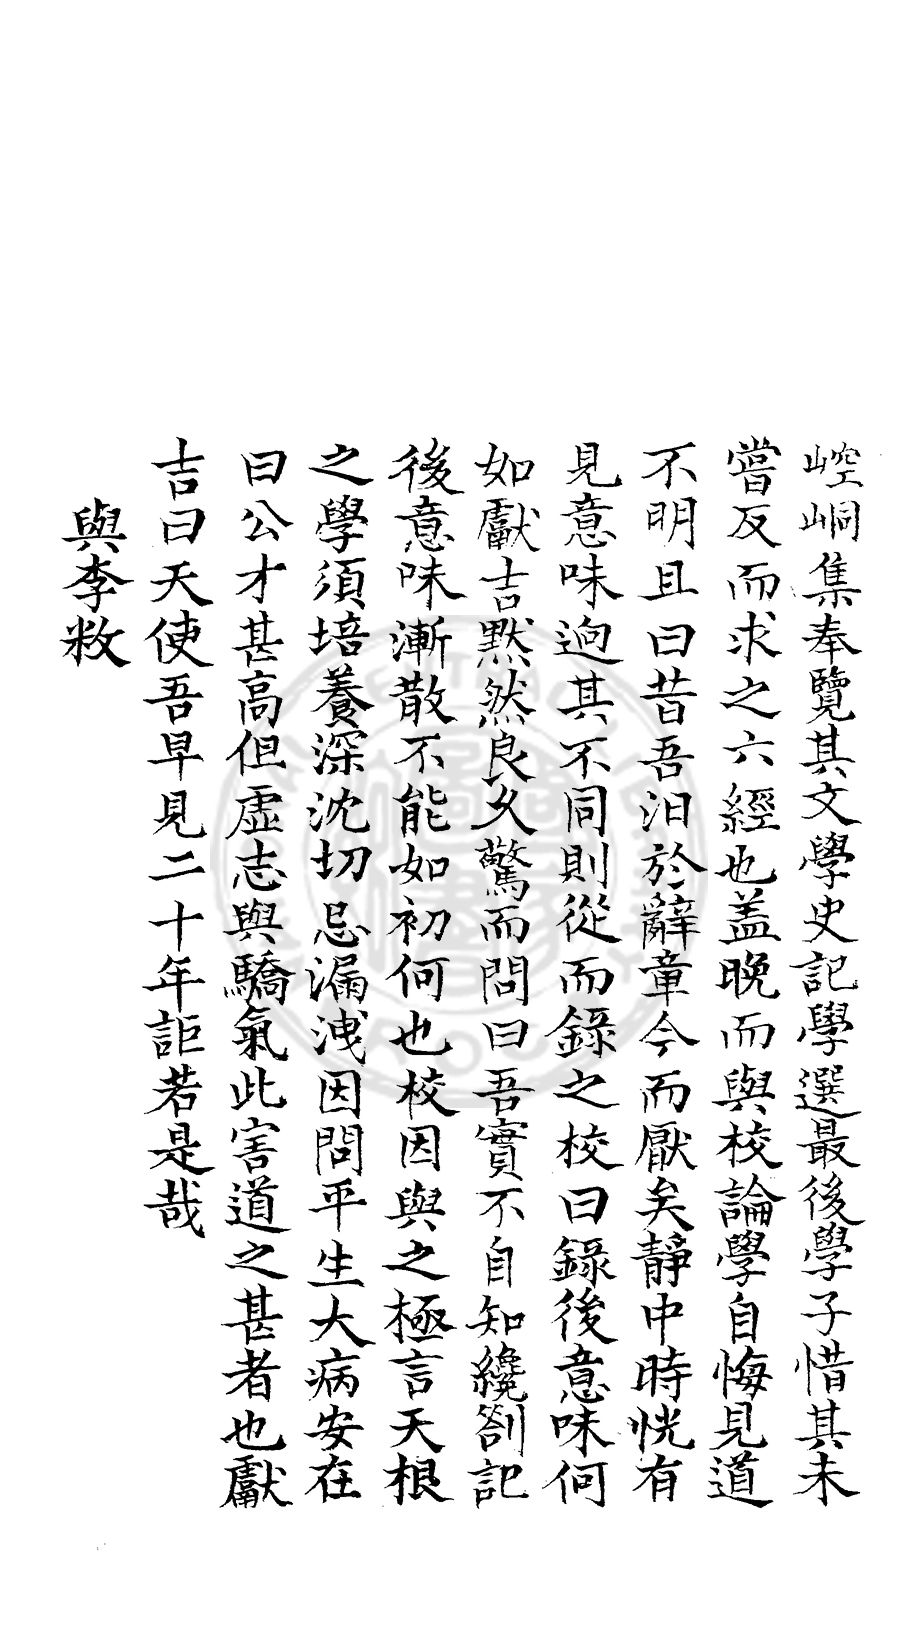 崆峒集奉覽其文學史記學選最後學子惜其未
嘗反而求之六經也盖晚而與校論學自悔見道
不明且曰昔吾汨於辭章今而厭矣靜中時恍有
見意味逈其不同則從而錄之校曰錄後意味何
如獻吉黙然良久驚而問曰吾實不自知纔劄記
後意味漸散不能如初何也校因與之極言天根
之學須培養深沈切忌漏洩因問平生大病安在
曰公才甚高但虛志與驕氣此害道之甚者也獻
吉曰天使吾早見二十年詎若是哉
與李敉